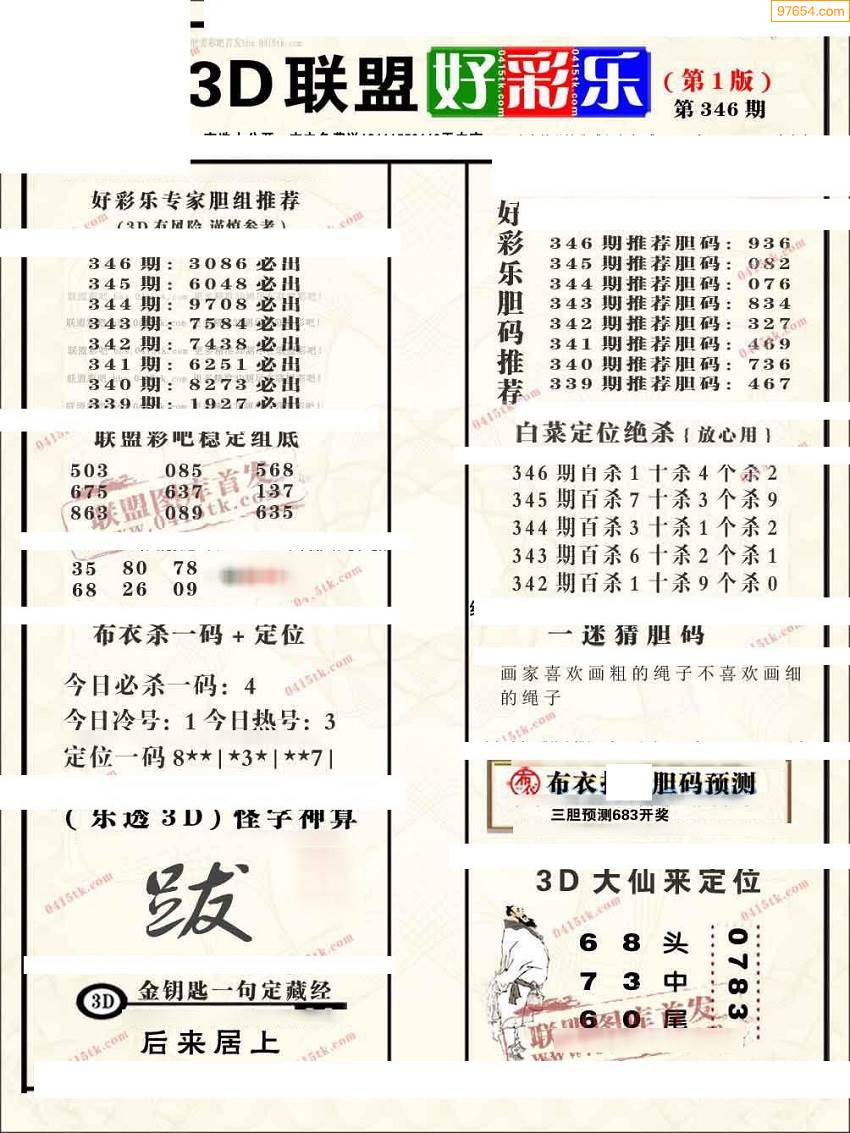 97654.com
3D联盟好彩乐
(第1版)
第346期
好彩乐专家胆组推荐
(3D有风险 谨慎参考)
346期: 3086必出
345期: 6048必出
344期: 9708必出
343期: 7584必出
342期: 7438必出
341期: 6251必出
340期: 8273必出
339期: 1927必出
联盟彩吧稳定组底
503 085 568
675 637 137
863 089 635
35 80 78
68 26 09
布衣杀一码+定位
今日必杀一码: 4
今日冷号: 1 今日热号: 3
定位一码8**|*3*|**7|
(乐透3D)怪字神算
跋
3D 金钥匙一句定藏经
后来居上
好彩乐胆码推荐
346期推荐胆码: 936
345期推荐胆码: 082
344期推荐胆码: 076
343期推荐胆码: 834
342期推荐胆码: 327
341期推荐胆码: 469
340期推荐胆码: 736
339期推荐胆码: 467
白菜定位绝杀{放心用}
346期百杀1十杀4个杀2
345期百杀7十杀3个杀9
344期百杀3十杀1个杀2
343期百杀6十杀2个杀1
342期百杀1十杀9个杀0
一迷猜胆码
画家喜欢画粗的绳子不喜欢画细
的绳子
布衣 胆码预测
三胆预测683开奖
3D大仙来定位
6 8 头
7 3 中
6 0 尾
0783
联盟图库首发
www.0415tk.com
0415tk.com